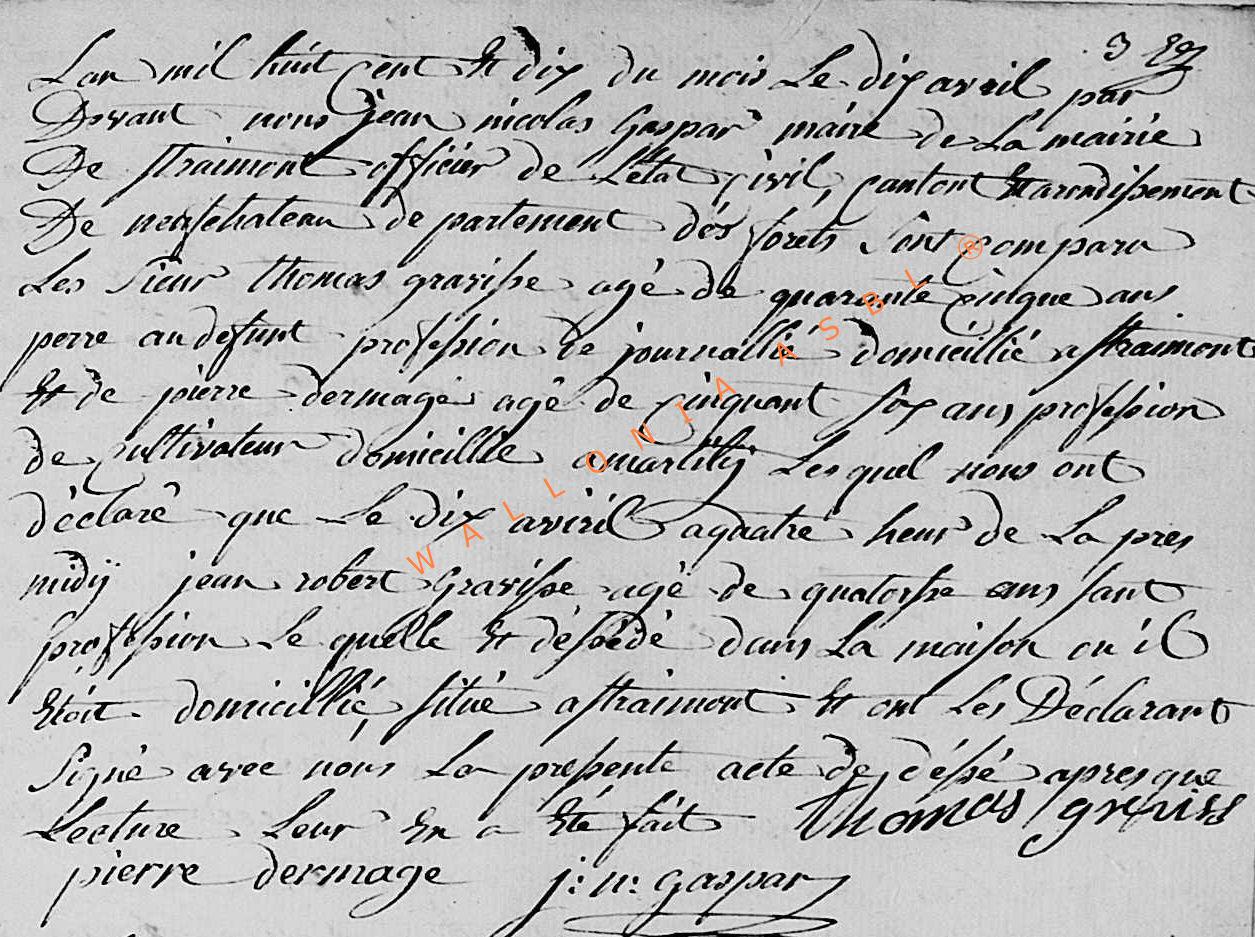 3 
Lan mil huit cent Et dix du mois Le dix avril par
Devant nous jean nicolas Gaspar maire de La mairie
De straimont officier de Létat civil, canton Et arondissement
De neufchateau de partement dés forets Sont comparu
Les Sieur thomas gravisse agé de quarante cinque ans
perre au defunt profession de journallié domicillié a straimont
Et de pierre dermage agé de cinquant six ans profession
de cultivateur domicillie a martilly Les quel nous ont
déclaré que Le dix aviril a quatre heur de La pres
midÿ jean robert Gravisse agé de quatorsse ans sant
profession Le quelle Et déssédé dans La maison ou il
Etoit domicillié, situé a straimont Et ont Les Déclarant
Signé avec nous La pressente acte de, déssé apres que
Lecture Leur En a Eté fait thomas greviss
pierre dermage j: n: gaspar
WALLONIA ASBL ®